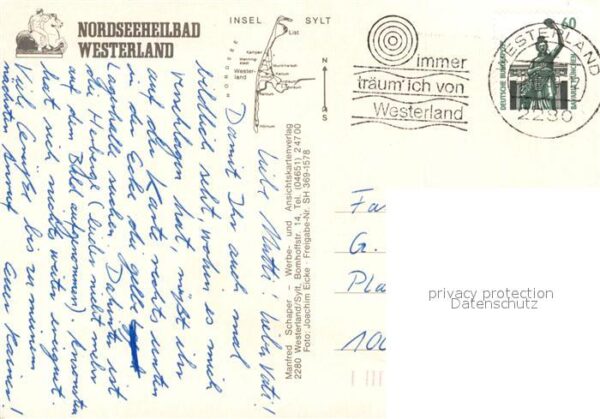 NORDSEEHEILBAD
WESTERLAND
INSEL SYLT
NORDSEE
List
Kampen
Wester-
land
Keitum
Hörnum
N
S
immer
träum' ich von
Westerland
WESTERLAND
2280
60
DEUTSCHE BUNDESPOST
BAVARIA MÜNCHEN
Liebe Mutti! Lieber Vati!
Damit Ihr auch mal
bildlich seht, wohin es mich
verschlagen hat, müßt ihr
auf der Karte rechts unten
in der Ecke die gelbe
Jugendhalle suchen. Dahinter ist
die Herberge (leider nicht mehr
auf dem Bild aufgenommen). Ansonsten
hat sich nichts weiter ereignet.
Viele Grüße, bis zu meinem
nächsten Anruf Euer Rainer!
Manfred Schaper – Werbe- und Ansichtskartenverlag
2280 Westerland/Sylt, Bomhoffstr. 14, Tel. (04651) 2 47 00
Foto: Joachim Eicke Freigabe-Nr. SH 369-1578
Fa
G.
Pla
100
privacy protection
Datenschutz